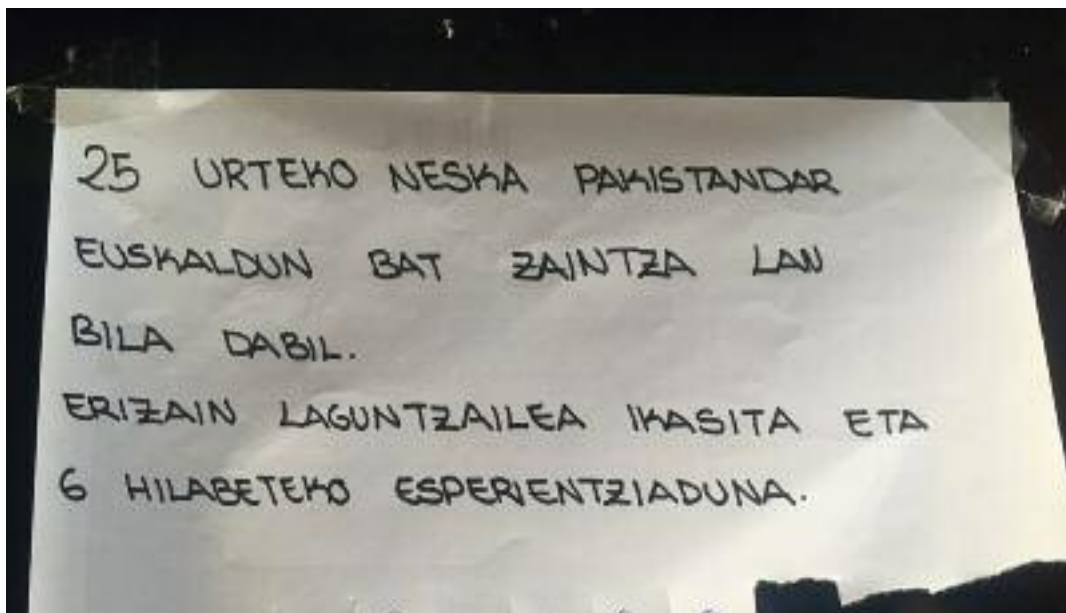 25 URTEKO NESKA PAKISTANDAR
EUSKALDUN BAT ZAINTZA LAN
BILA DABIL.
ERIZAIN LAGUNTZAILEA IKASITA ETA
6 HILABETEKO ESPERIENTZIADUNA.